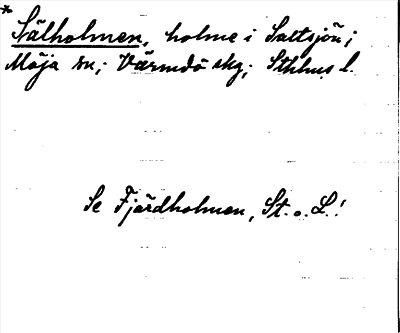 * Stälholmen, holme i Saltsjön;
Möja sn.; Värmdö skg; Sthlms l.
Se Fjärdholmen, St. o. L.!